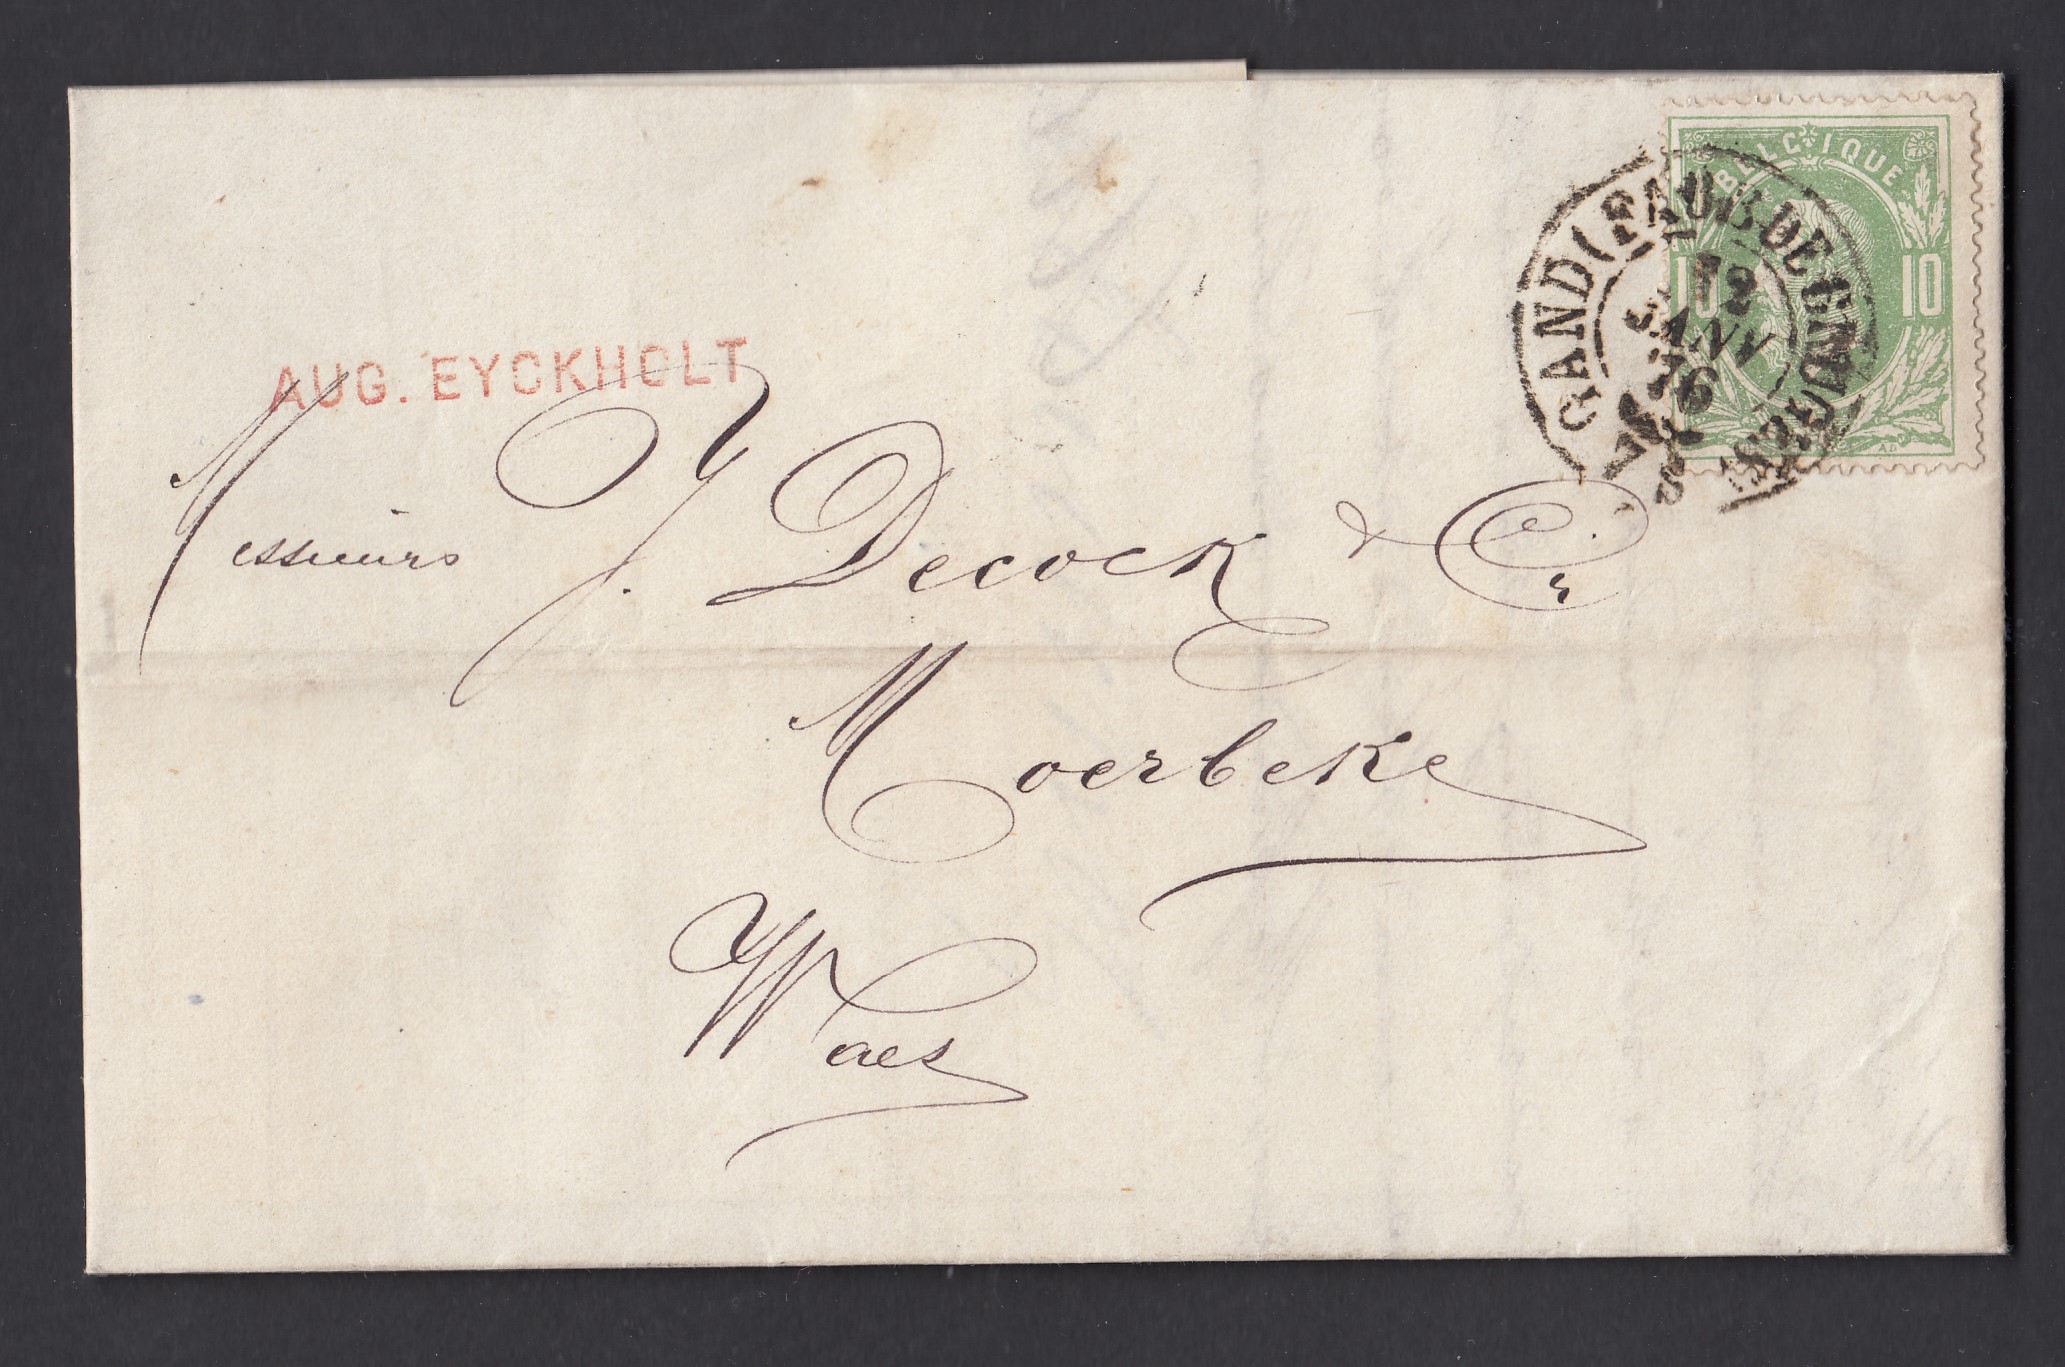 BELGIQUE
10 10
GAND (FAUB DE
12
JANV
76
AUG. EYCKHOLT
Messieurs J. Decock & Cie
Moerbeke
Waes